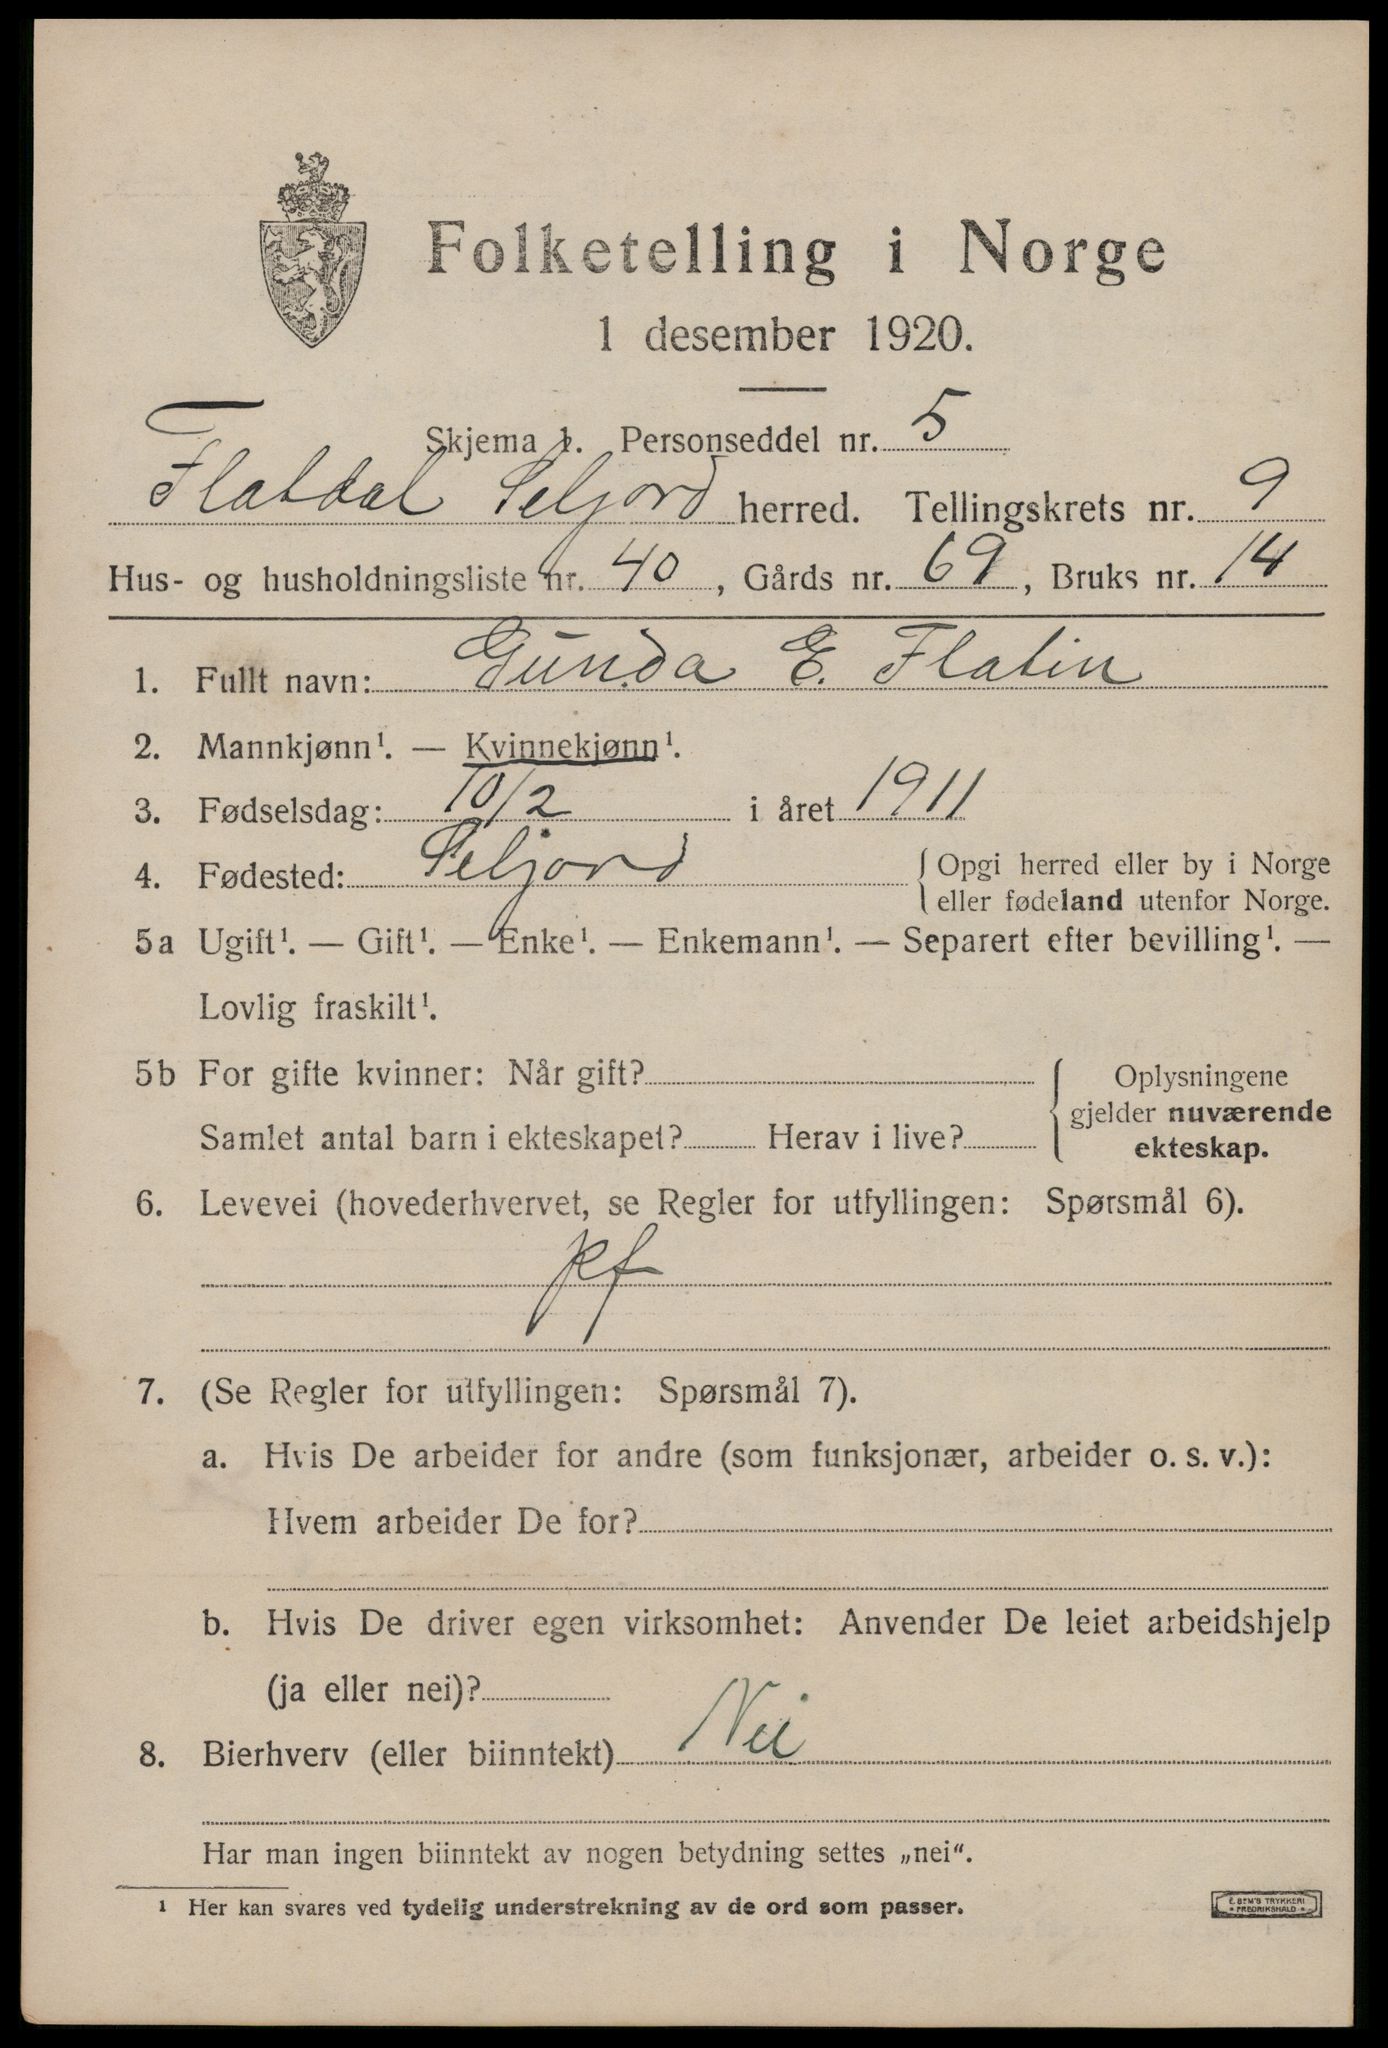 Folketelling i Norge
1 desember 1920.
Skjema 1. Personseddel nr. 5
Flatdal Seljord herred. Tellingskrets nr. 9
Hus- og husholdningsliste nr. 40, Gårds nr. 69, Bruks nr. 14
1. Fullt navn: Gunda E. Flatin
2. Mannkjønn¹. — Kvinnekjønn¹.
3. Fødselsdag: 10/2 i året 1911
4. Fødested: Seljord { Opgi herred eller by i Norge
eller fødeland utenfor Norge.
5a Ugift¹. — Gift¹. — Enke¹. — Enkemann¹. — Separert efter bevilling¹. —
Lovlig fraskilt¹.
5b For gifte kvinner: Når gift?
Samlet antal barn i ekteskapet? Herav i live?
{ Oplysningene
gjelder nuværende
ekteskap.
6. Levevei (hovederhvervet, se Regler for utfyllingen: Spørsmål 6).
pf
7. (Se Regler for utfyllingen: Spørsmål 7).
a. Hvis De arbeider for andre (som funksjonær, arbeider o. s. v.):
Hvem arbeider De for?
b. Hvis De driver egen virksomhet: Anvender De leiet arbeidshjelp
(ja eller nei)?
8. Bierhverv (eller biinntekt) Nei
Har man ingen biinntekt av nogen betydning settes „nei“.
¹ Her kan svares ved tydelig understrekning av de ord som passer.
E. SEM'S TRYKKERI
FREDRIKSHALD